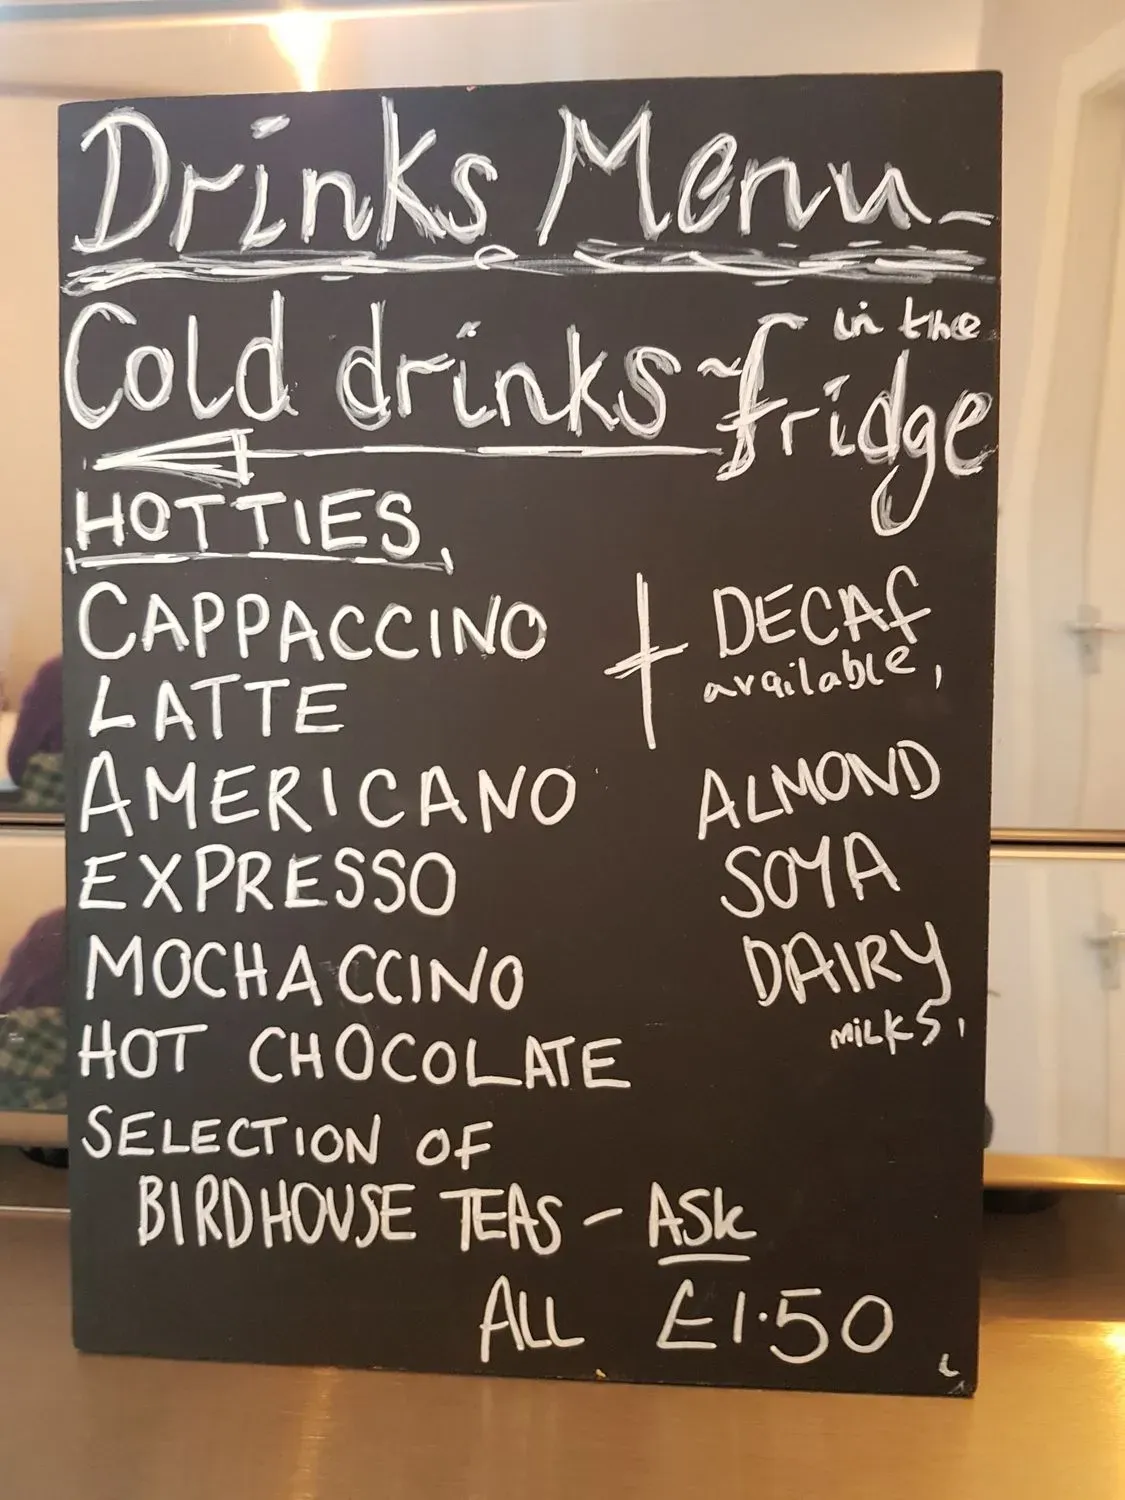 Drinks Menu
Cold drinks ~ in the
fridge
HOTTIES
CAPPACCINO
LATTE
AMERICANO
EXPRESSO
MOCHACCINO
HOT CHOCOLATE
+ DECAF
available,
ALMOND
SOYA
DAIRY
MILKS,
SELECTION OF
BIRDHOUSE TEAS - ASK
ALL £1.50